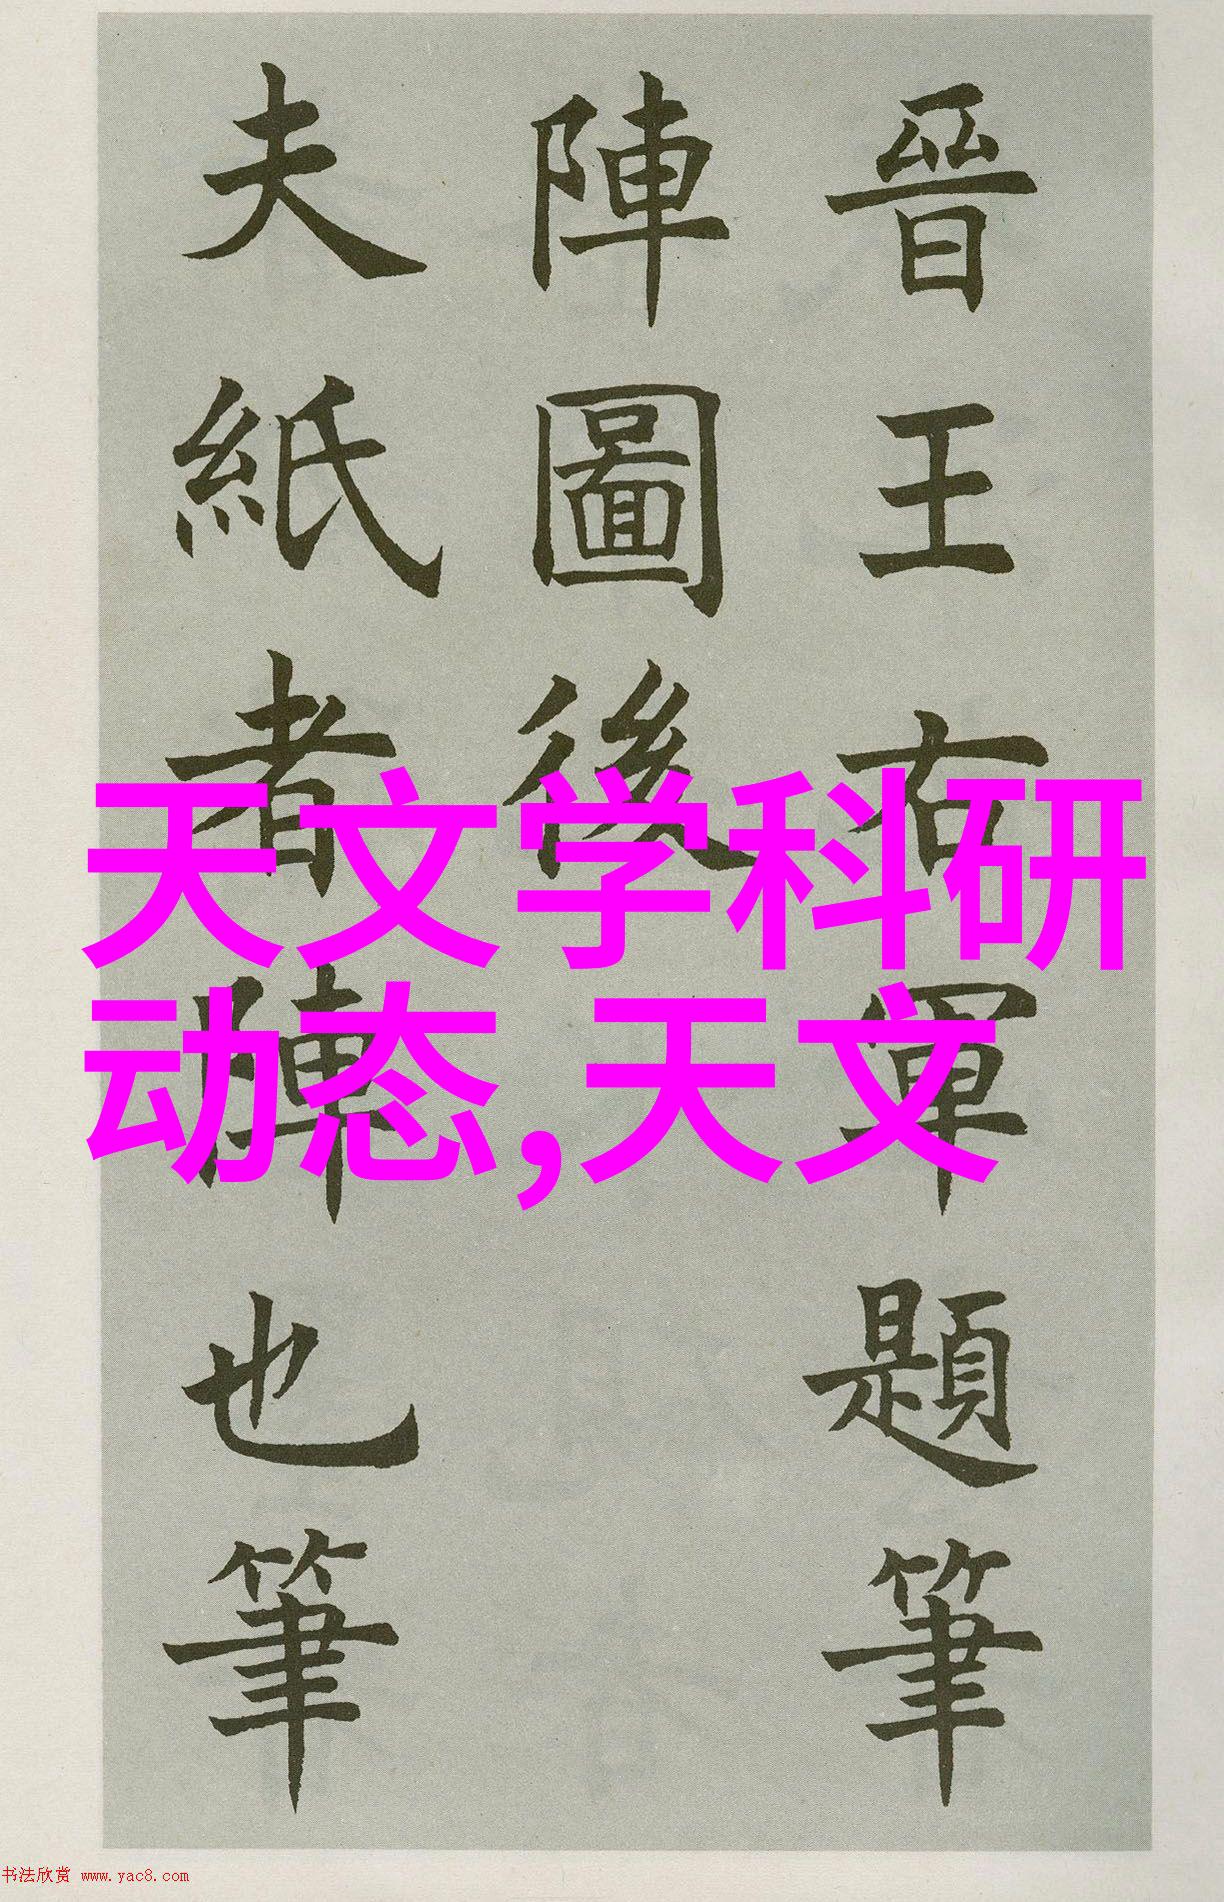 晉王右軍題筆
陣圖後
夫紙者陣也筆
天文学科研
动态,天文
书法欣赏 www.yac8.com